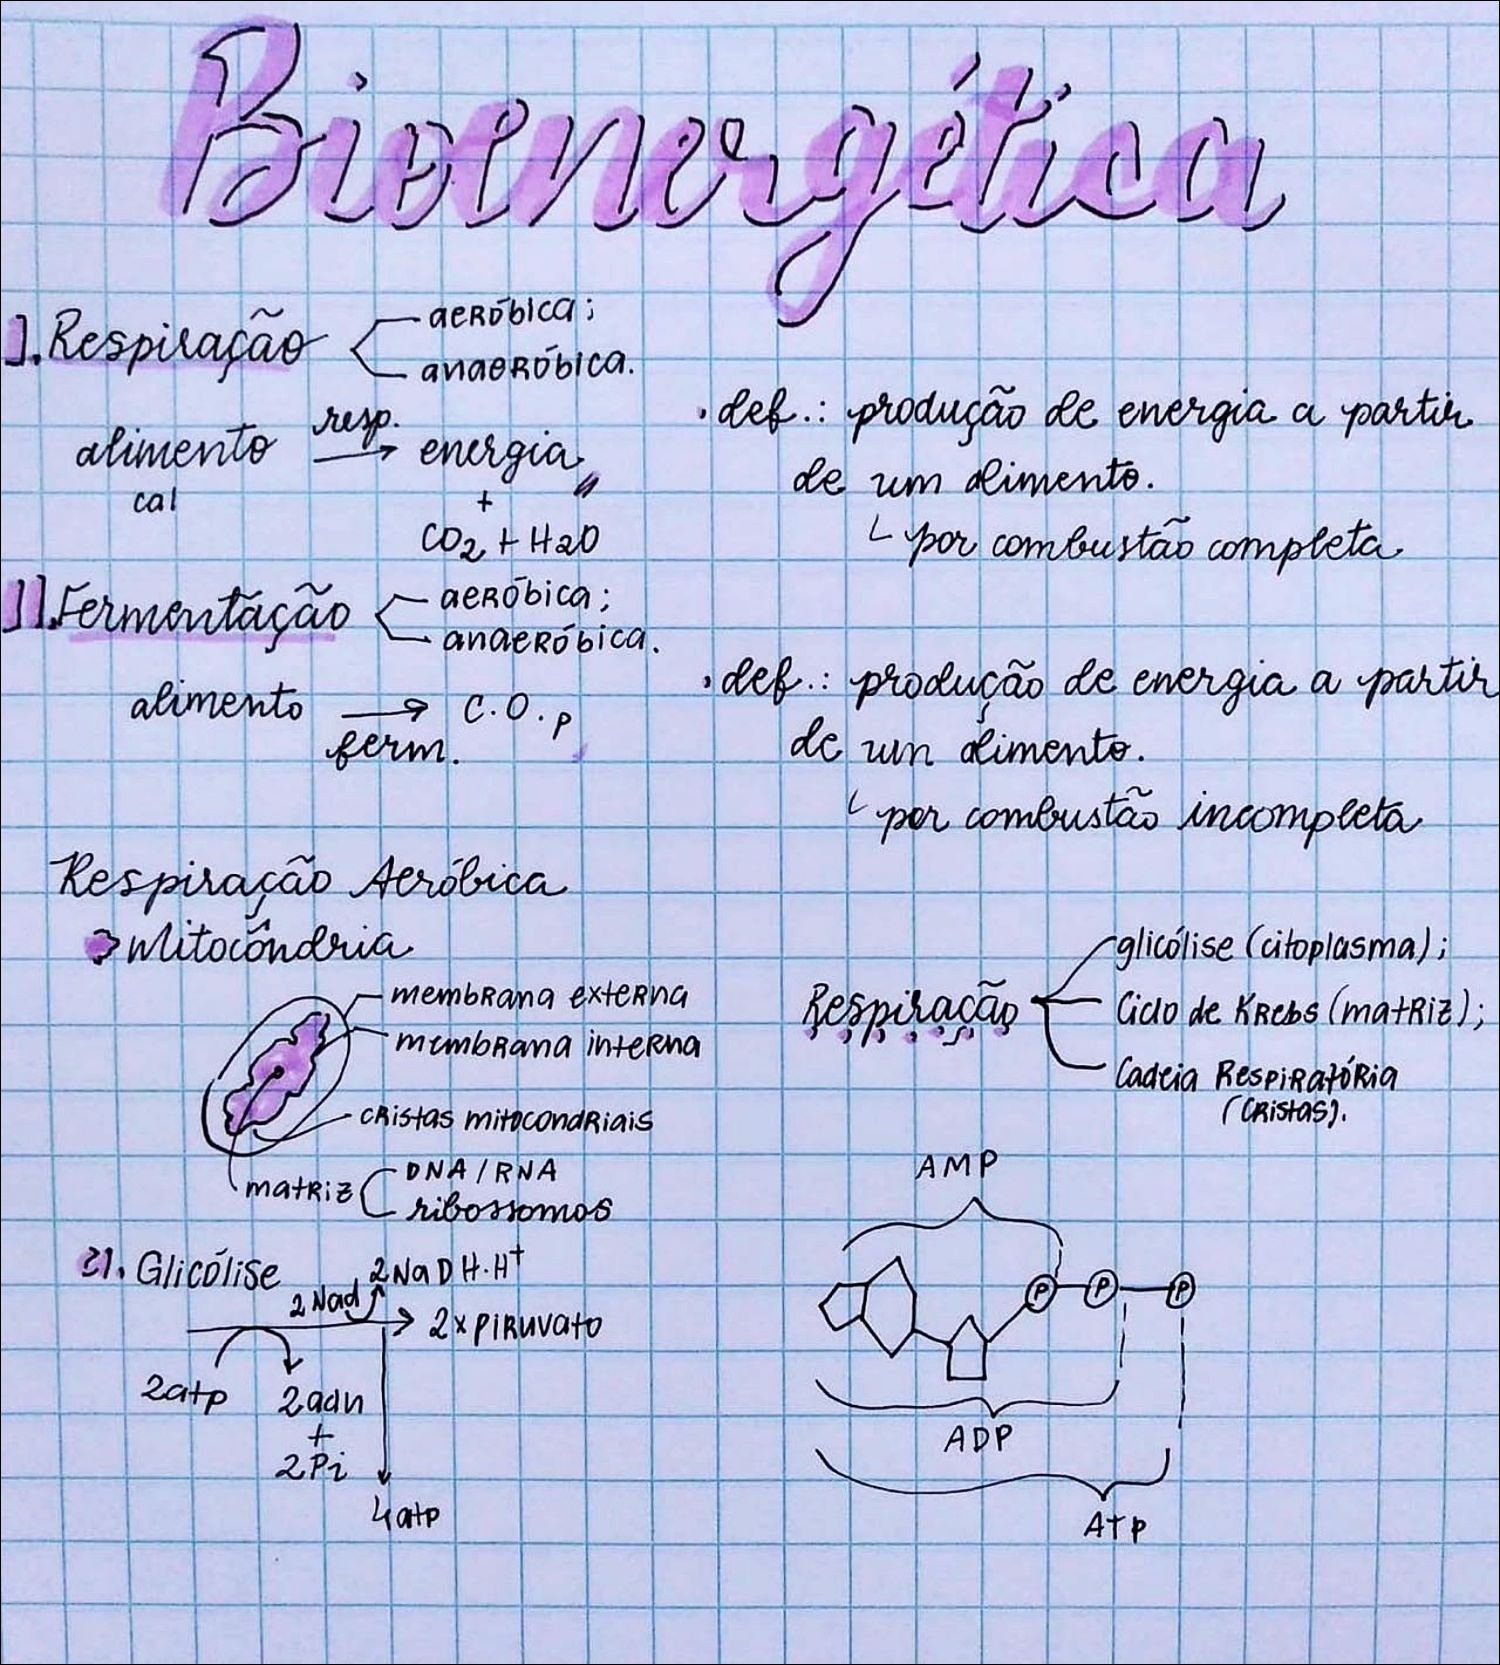 Bioenergética
I. Respiração
aeróbica;
anaeróbica.
alimento resp. energia
cal
+
CO2 + H2O
. def.: produção de energia a partir
de um alimento.
por combustão completa
II. Fermentação
aeróbica;
anaeróbica.
alimento → C.O.P
ferm.
. def.: produção de energia a partir
de um alimento.
por combustão incompleta
Respiração Aeróbica
Mitocôndria
membrana externa
membrana interna
cristas mitocondriais
matriz
DNA / RNA
ribossomos
Respiração
glicólise (citoplasma);
Ciclo de Krebs (matriz);
Cadeia Respiratória
(cristas).
21. Glicólise
2 Nad
2 NaDH.H+
2x piruvato
2atp
2adn
+
2Pi
4atp
AMP
P P P
ADP
ATP